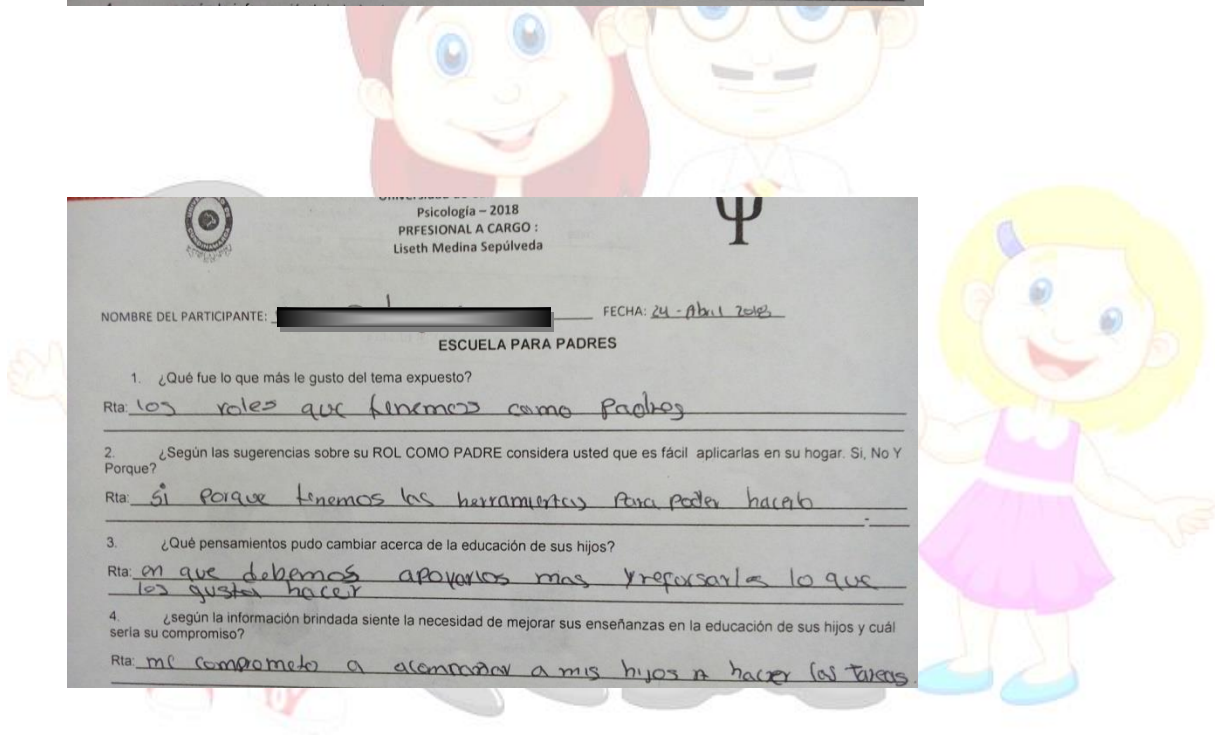 Psicología – 2018
PRFESIONAL A CARGO :
Liseth Medina Sepúlveda
NOMBRE DEL PARTICIPANTE: FECHA: 24 - Abril 2018
ESCUELA PARA PADRES
1. ¿Qué fue lo que más le gusto del tema expuesto?
Rta: los roles que tenemos como Padres
2. ¿Según las sugerencias sobre su ROL COMO PADRE considera usted que es fácil aplicarlas en su hogar. Si, No Y
Porque?
Rta: si porque tenemos las herramientas Para poder hacerlo
3. ¿Qué pensamientos pudo cambiar acerca de la educación de sus hijos?
Rta: en que debemos apoyarlos mas y reforsarles lo que
les gusta hacer
4. ¿según la información brindada siente la necesidad de mejorar sus enseñanzas en la educación de sus hijos y cuál
seria su compromiso?
Rta: me comprometo a acompañar a mis hijos a hacer las tareas.